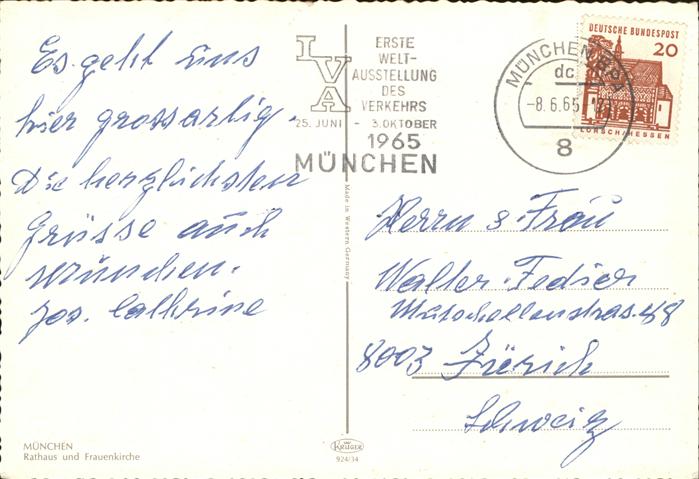 Es geht uns
hier grossartig.
Die herzlichsten
Grüsse aus
München.
Jos. Cathrine
MÜNCHEN
Rathaus und Frauenkirche
IVA
ERSTE
WELT-
AUSSTELLUNG
DES
VERKEHRS
25. JUNI - 3. OKTOBER
1965
MÜNCHEN
MÜNCHEN
dc
-8.6.65
8
DEUTSCHE BUNDESPOST
20
LORSCH/HESSEN
Made in Western Germany
Herrn & Frau
Walter
8003 Zürich
Schweiz
KRÜGER
924/34